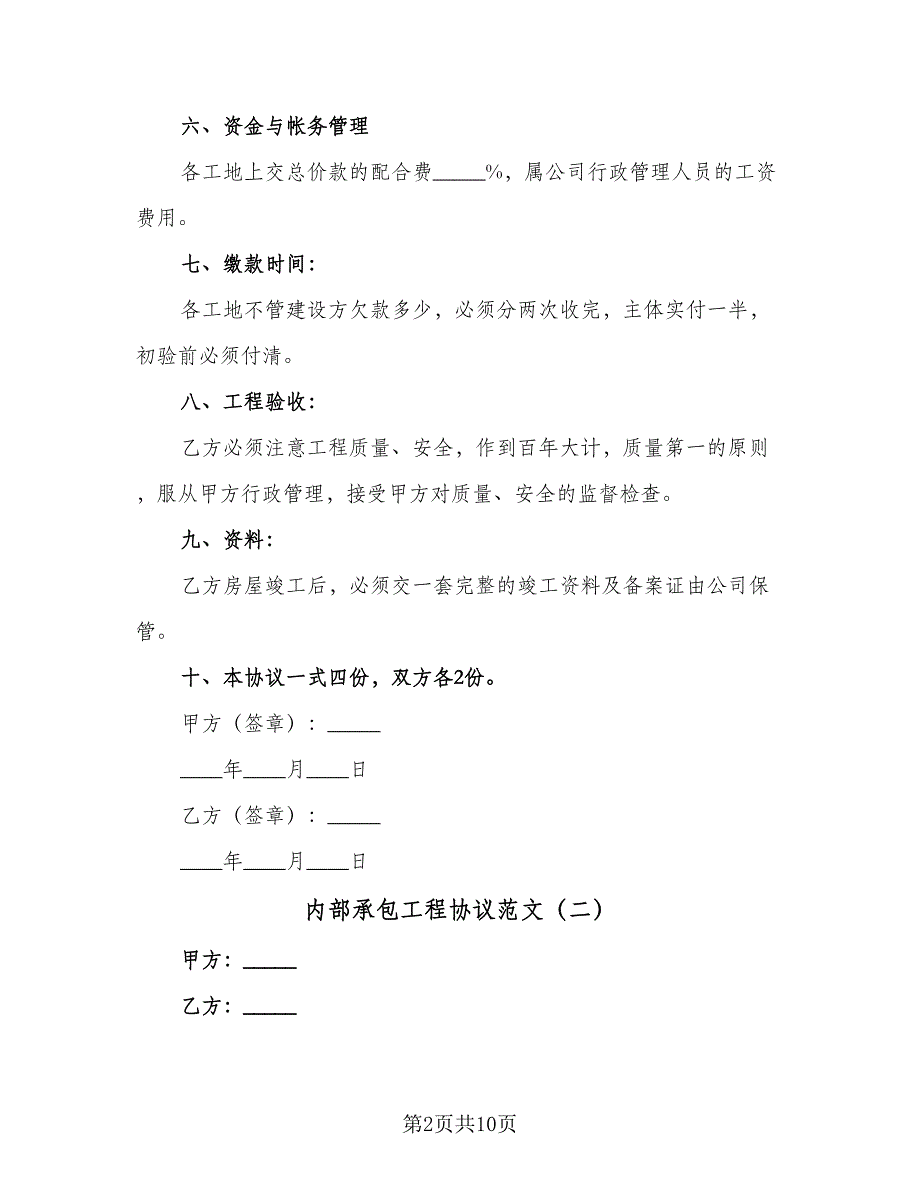 六、资金与帐务管理
各工地上交总价款的配合费_____%，属公司行政管理人员的工资
费用。
七、缴款时间：
各工地不管建设方欠款多少，必须分两次收完，主体实付一半，
初验前必须付清。
八、工程验收：
乙方必须注意工程质量、安全，作到百年大计，质量第一的原则
，服从甲方行政管理，接受甲方对质量、安全的监督检查。
九、资料：
乙方房屋竣工后，必须交一套完整的竣工资料及备案证由公司保
管。
十、本协议一式四份，双方各2份。
甲方（签章）：_____
____年____月____日
乙方（签章）：_____
____年____月____日
内部承包工程协议范文（二）
甲方：_____
乙方：_____
第2页共10页